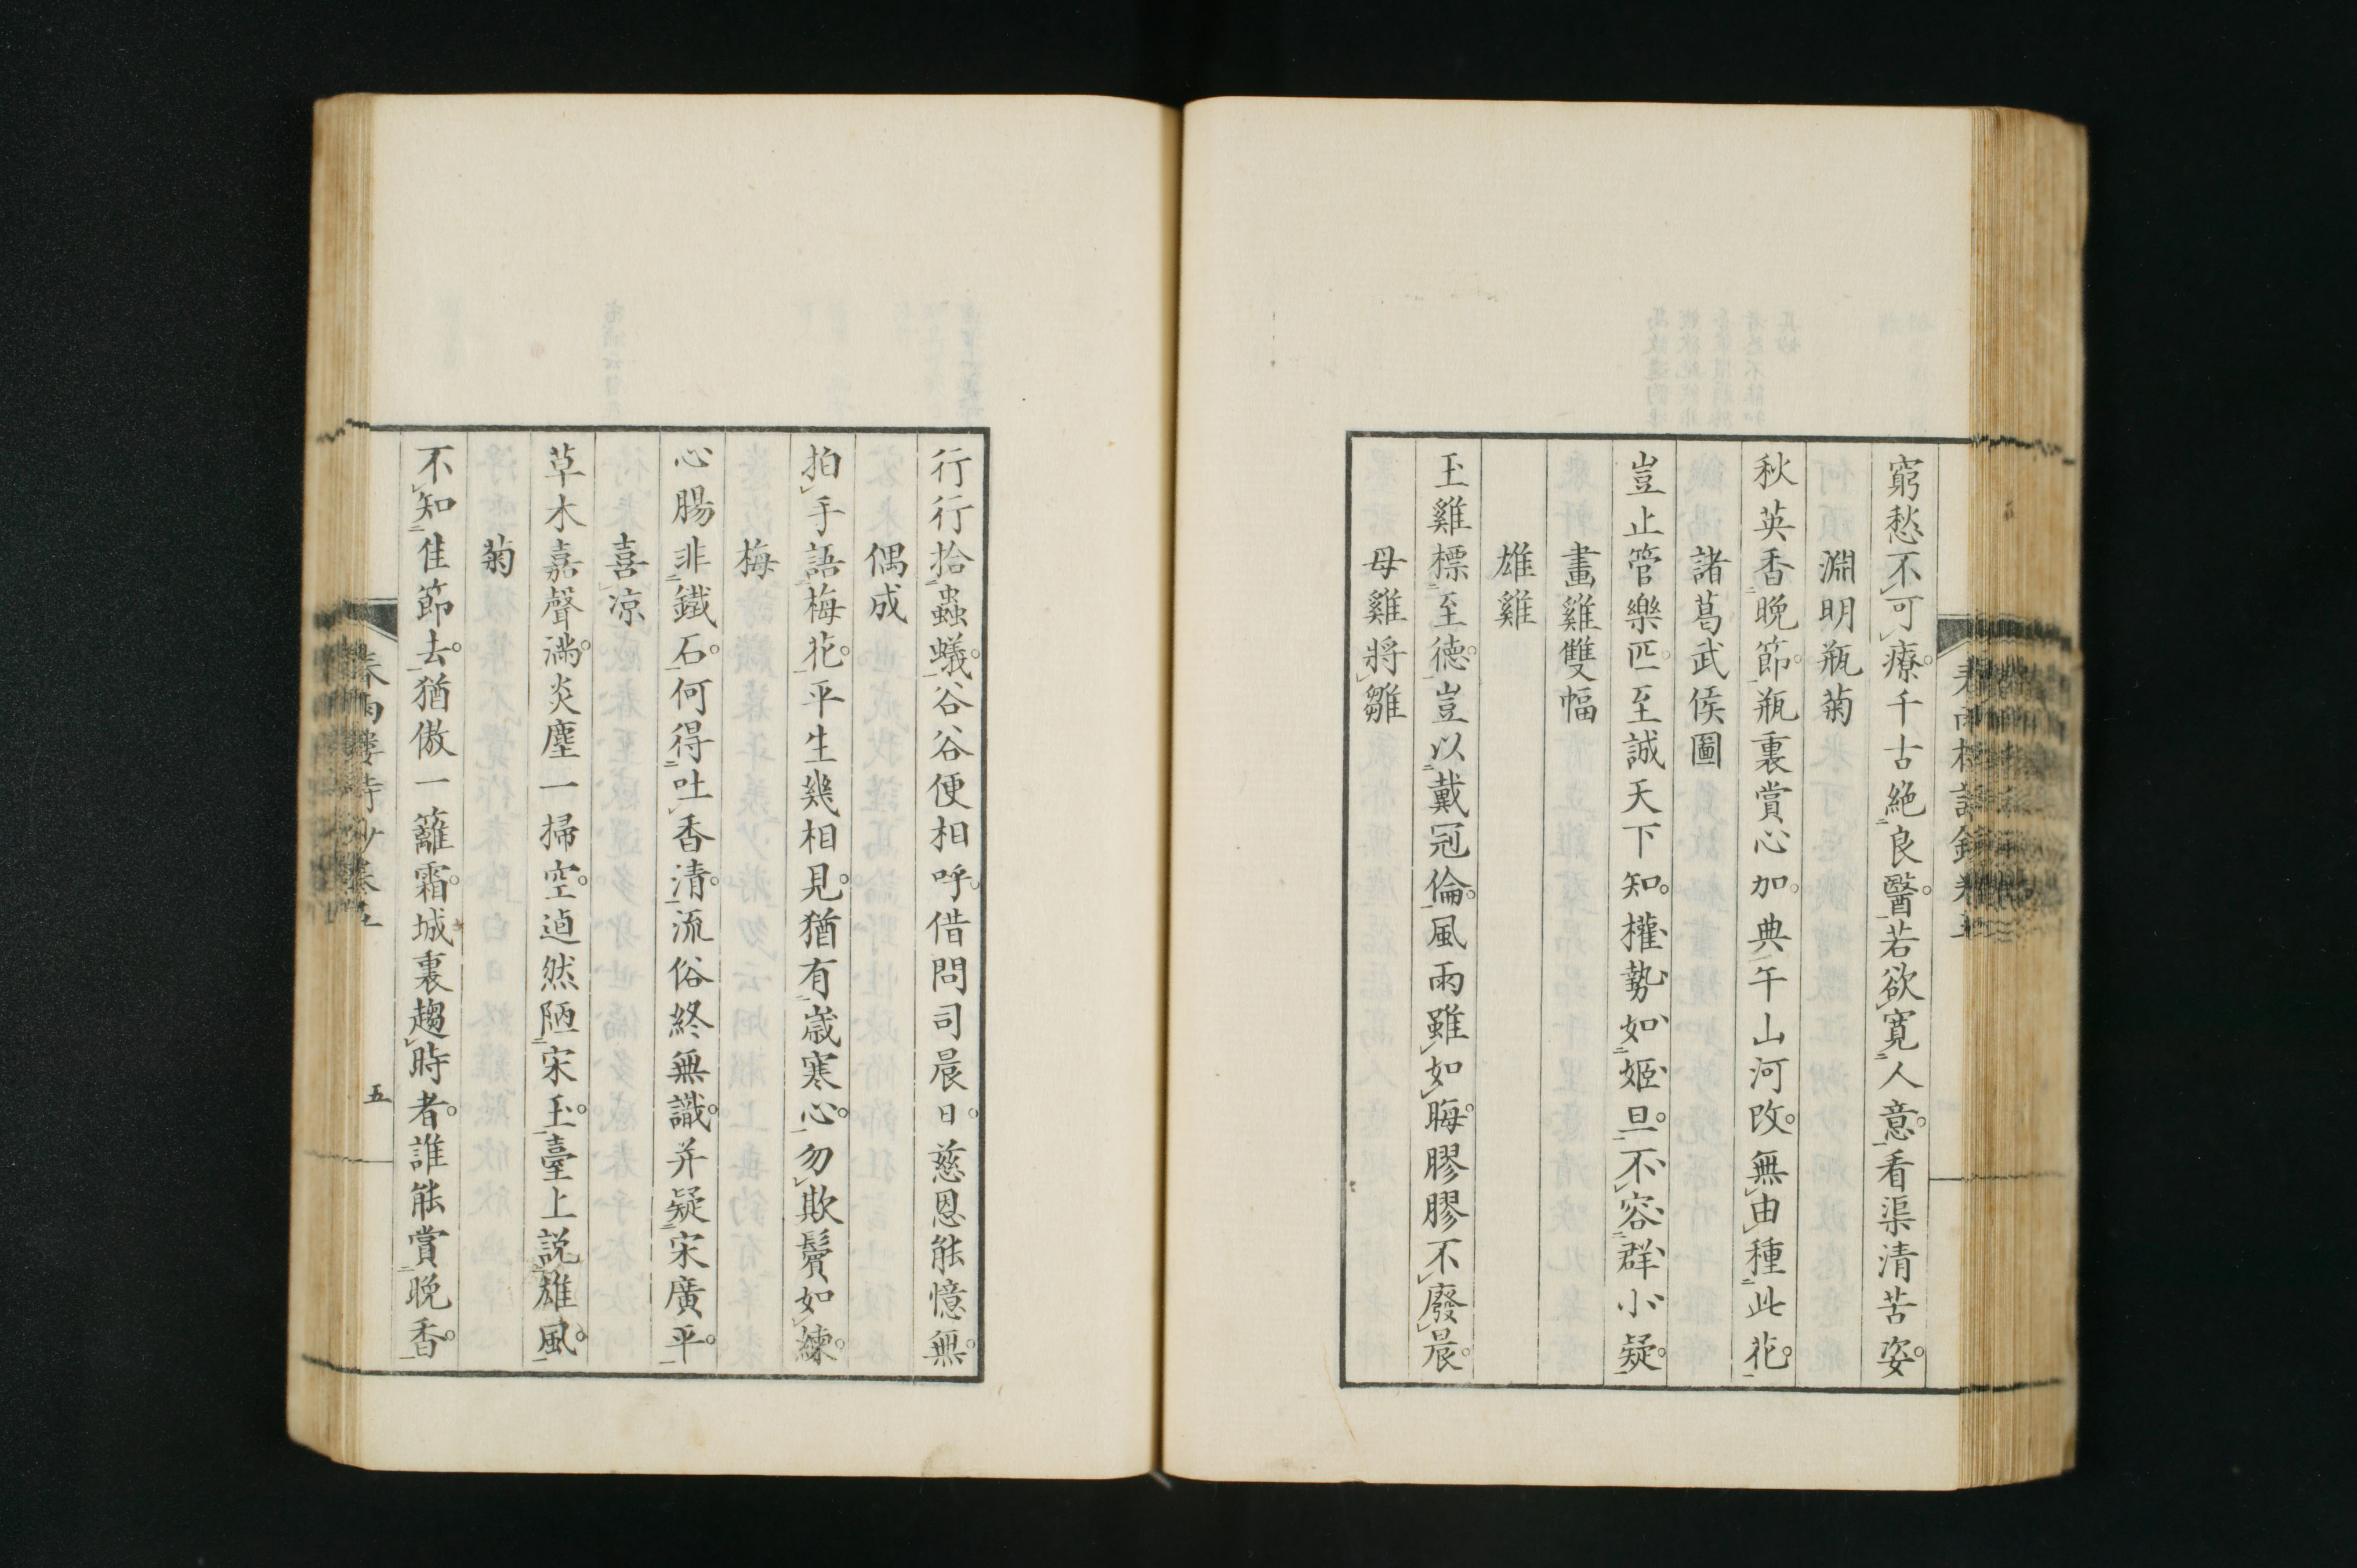 窮愁不可療。千古絶良醫。若欲寛人意。看渠清苦姿。
淵明瓶菊
秋英香晩節。瓶裏賞心加。典午山河改。無由種此花。
諸葛武侯圖
豈止管樂匹。至誠天下知。權勢如姬旦。不容群小疑。
畫雞雙幅
雄雞
玉雞標至徳。豈以戴冠倫。風雨雖如晦。膠膠不廢晨。
母雞將雛
行行拾蟲蟻。谷谷便相呼。借問司晨日。慈恩能憶無。
偶成
拍手語梅花。平生幾相見。猶有歳寒心。勿欺鬢如練。
梅
心腸非鐵石。何得吐香清。流俗終無識。并疑宋廣平。
喜凉
草木嘉聲滿。炎塵一掃空。逌然陋宋玉。臺上説雄風。
菊
不知佳節去。猶傲一籬霜。城裏趨時者。誰能賞晩香。
春雨樓詩鈔卷五
五